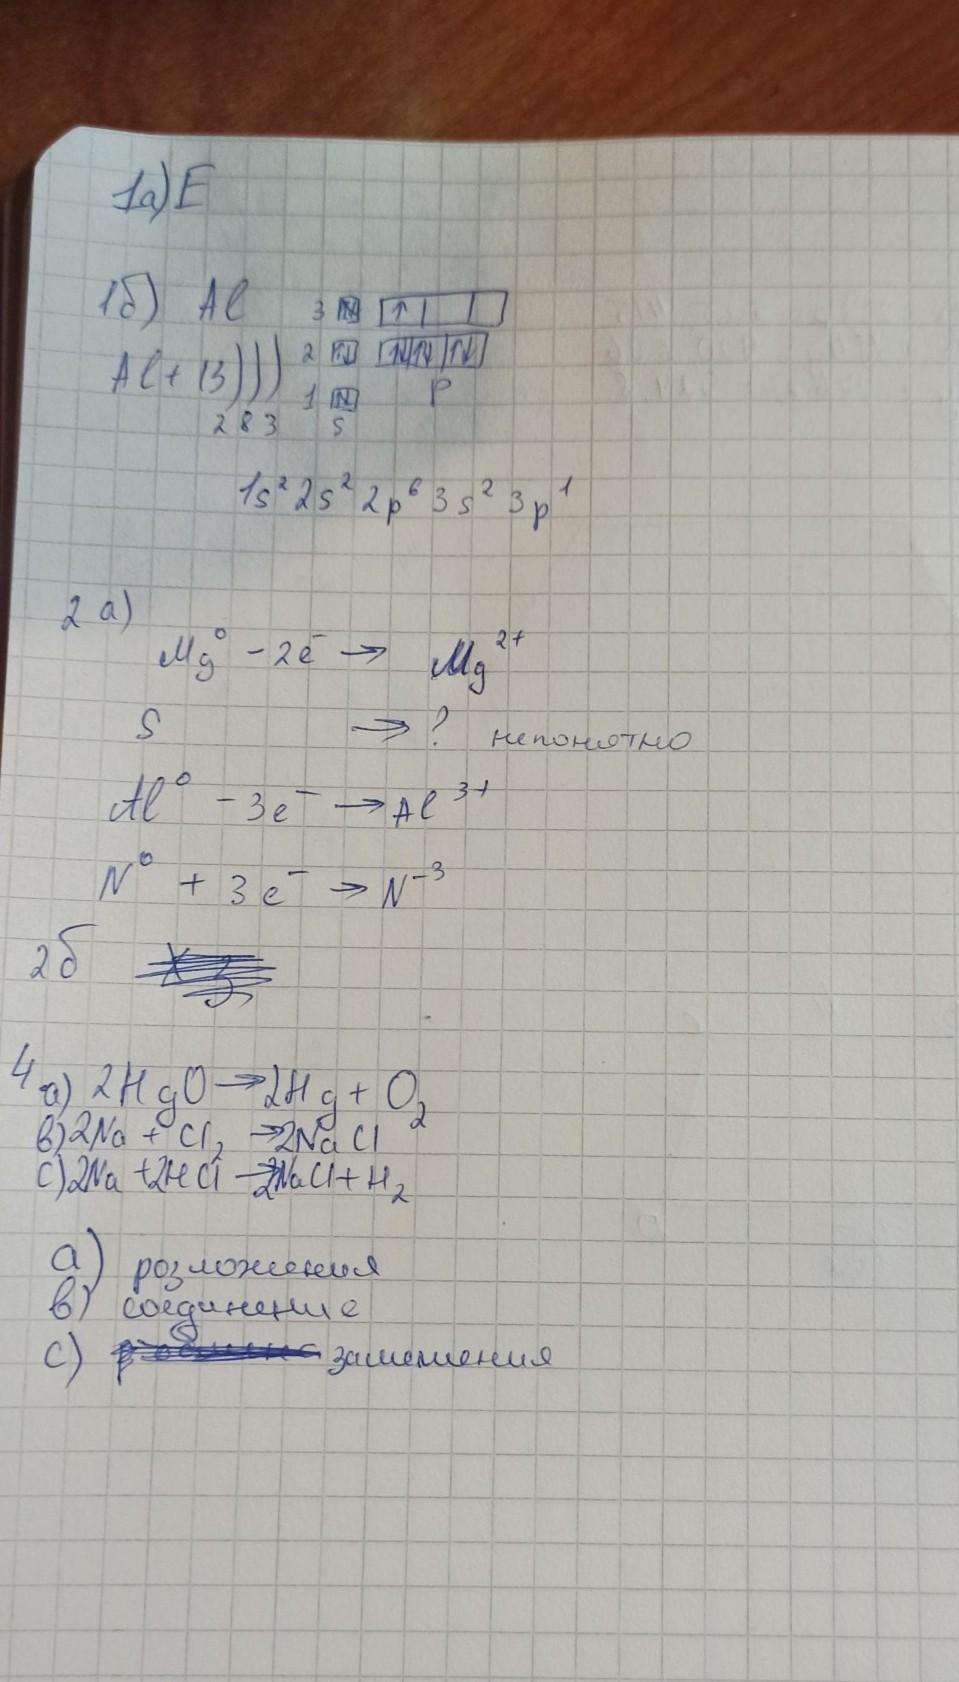 1а) E
1б) Al
3 ↑↓ ↑
Al + 13 ) ) ) 2 ↑↓ ↑↓ ↑↓ ↑↓
1 ↑↓ p
2 8 3 s
1s² 2s² 2p⁶ 3s² 3p¹
2 а)
Mg⁰ - 2e⁻ → Mg²⁺
S → ? непонятно
Al⁰ - 3e⁻ → Al³⁺
N⁰ + 3e⁻ → N⁻³
2б
4
а) 2HgO → 2Hg + O₂
в) 2Na + Cl₂ → 2NaCl
с) 2Na + 2HCl → 2NaCl + H₂
а) розложения
в) соединение
с) замещения